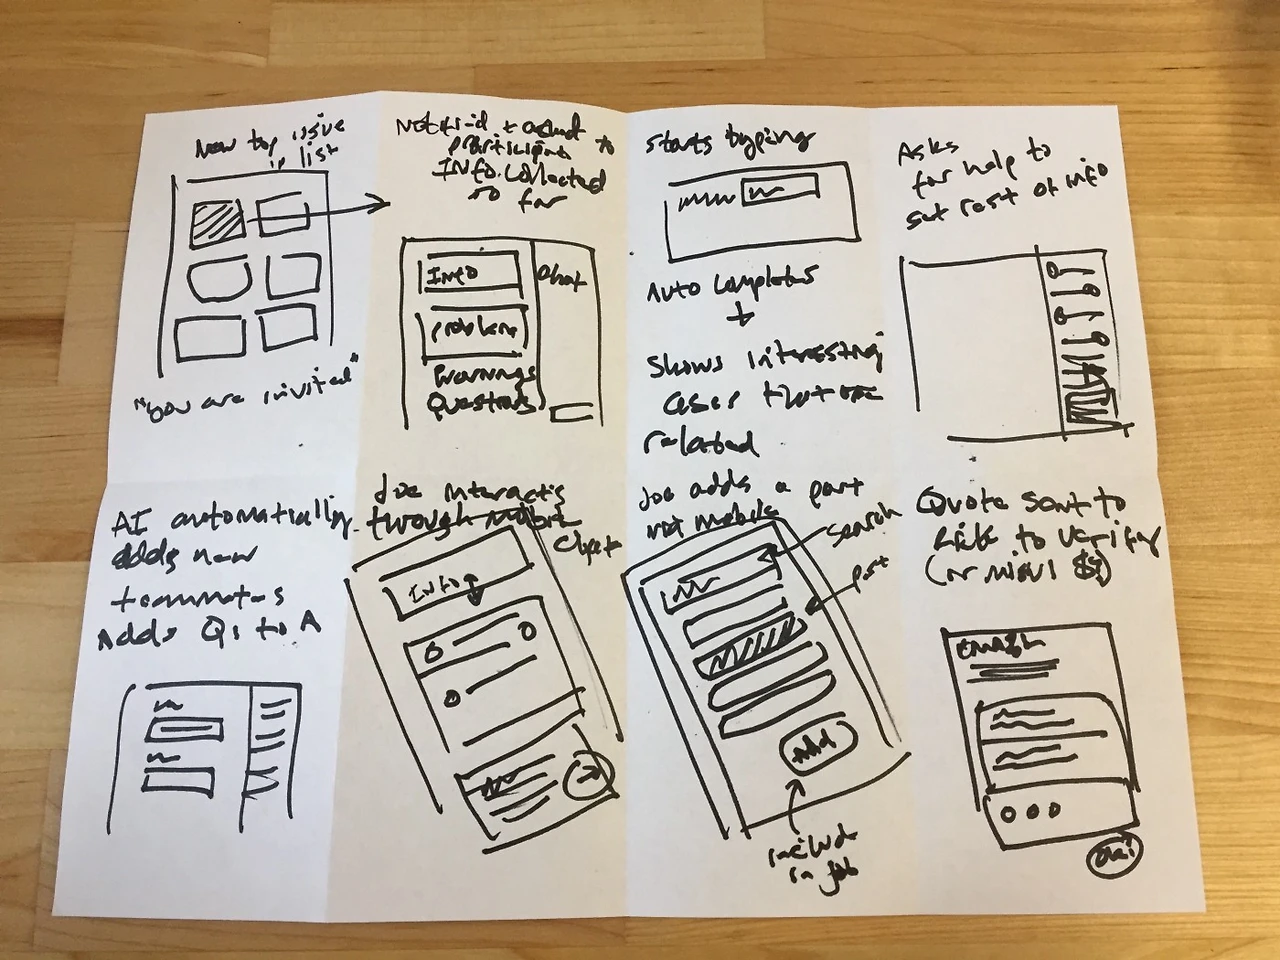 New top issue
in list
"You are invited"
participant
Info collected
so far
Info
Chat
problem
Warnings
Questions
Starts typing
Auto completes
+
Shows interesting
cases that
related
Asks
for help to
get rest of info
AI automatically
adds new
teammates
Adds Q1 to A
Joe interacts
through mobile
Info
Joe adds a part
search
part
Add
include
in job
Quote sent to
to verify
email